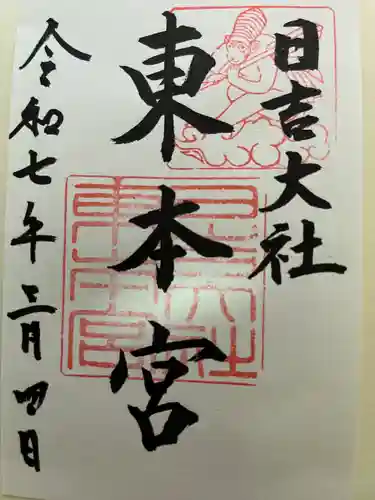 日吉大社
東本宮
令和七年三月四日